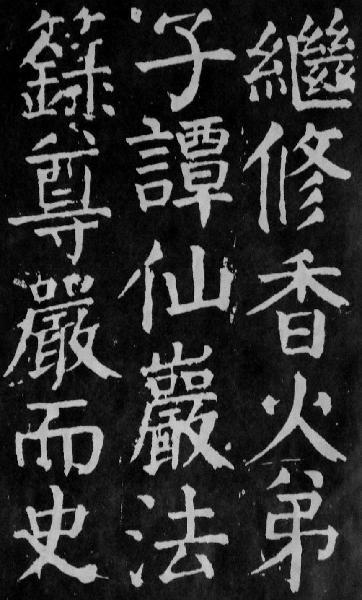 繼修香火弟
子譚仙巖法
籙尊嚴而史